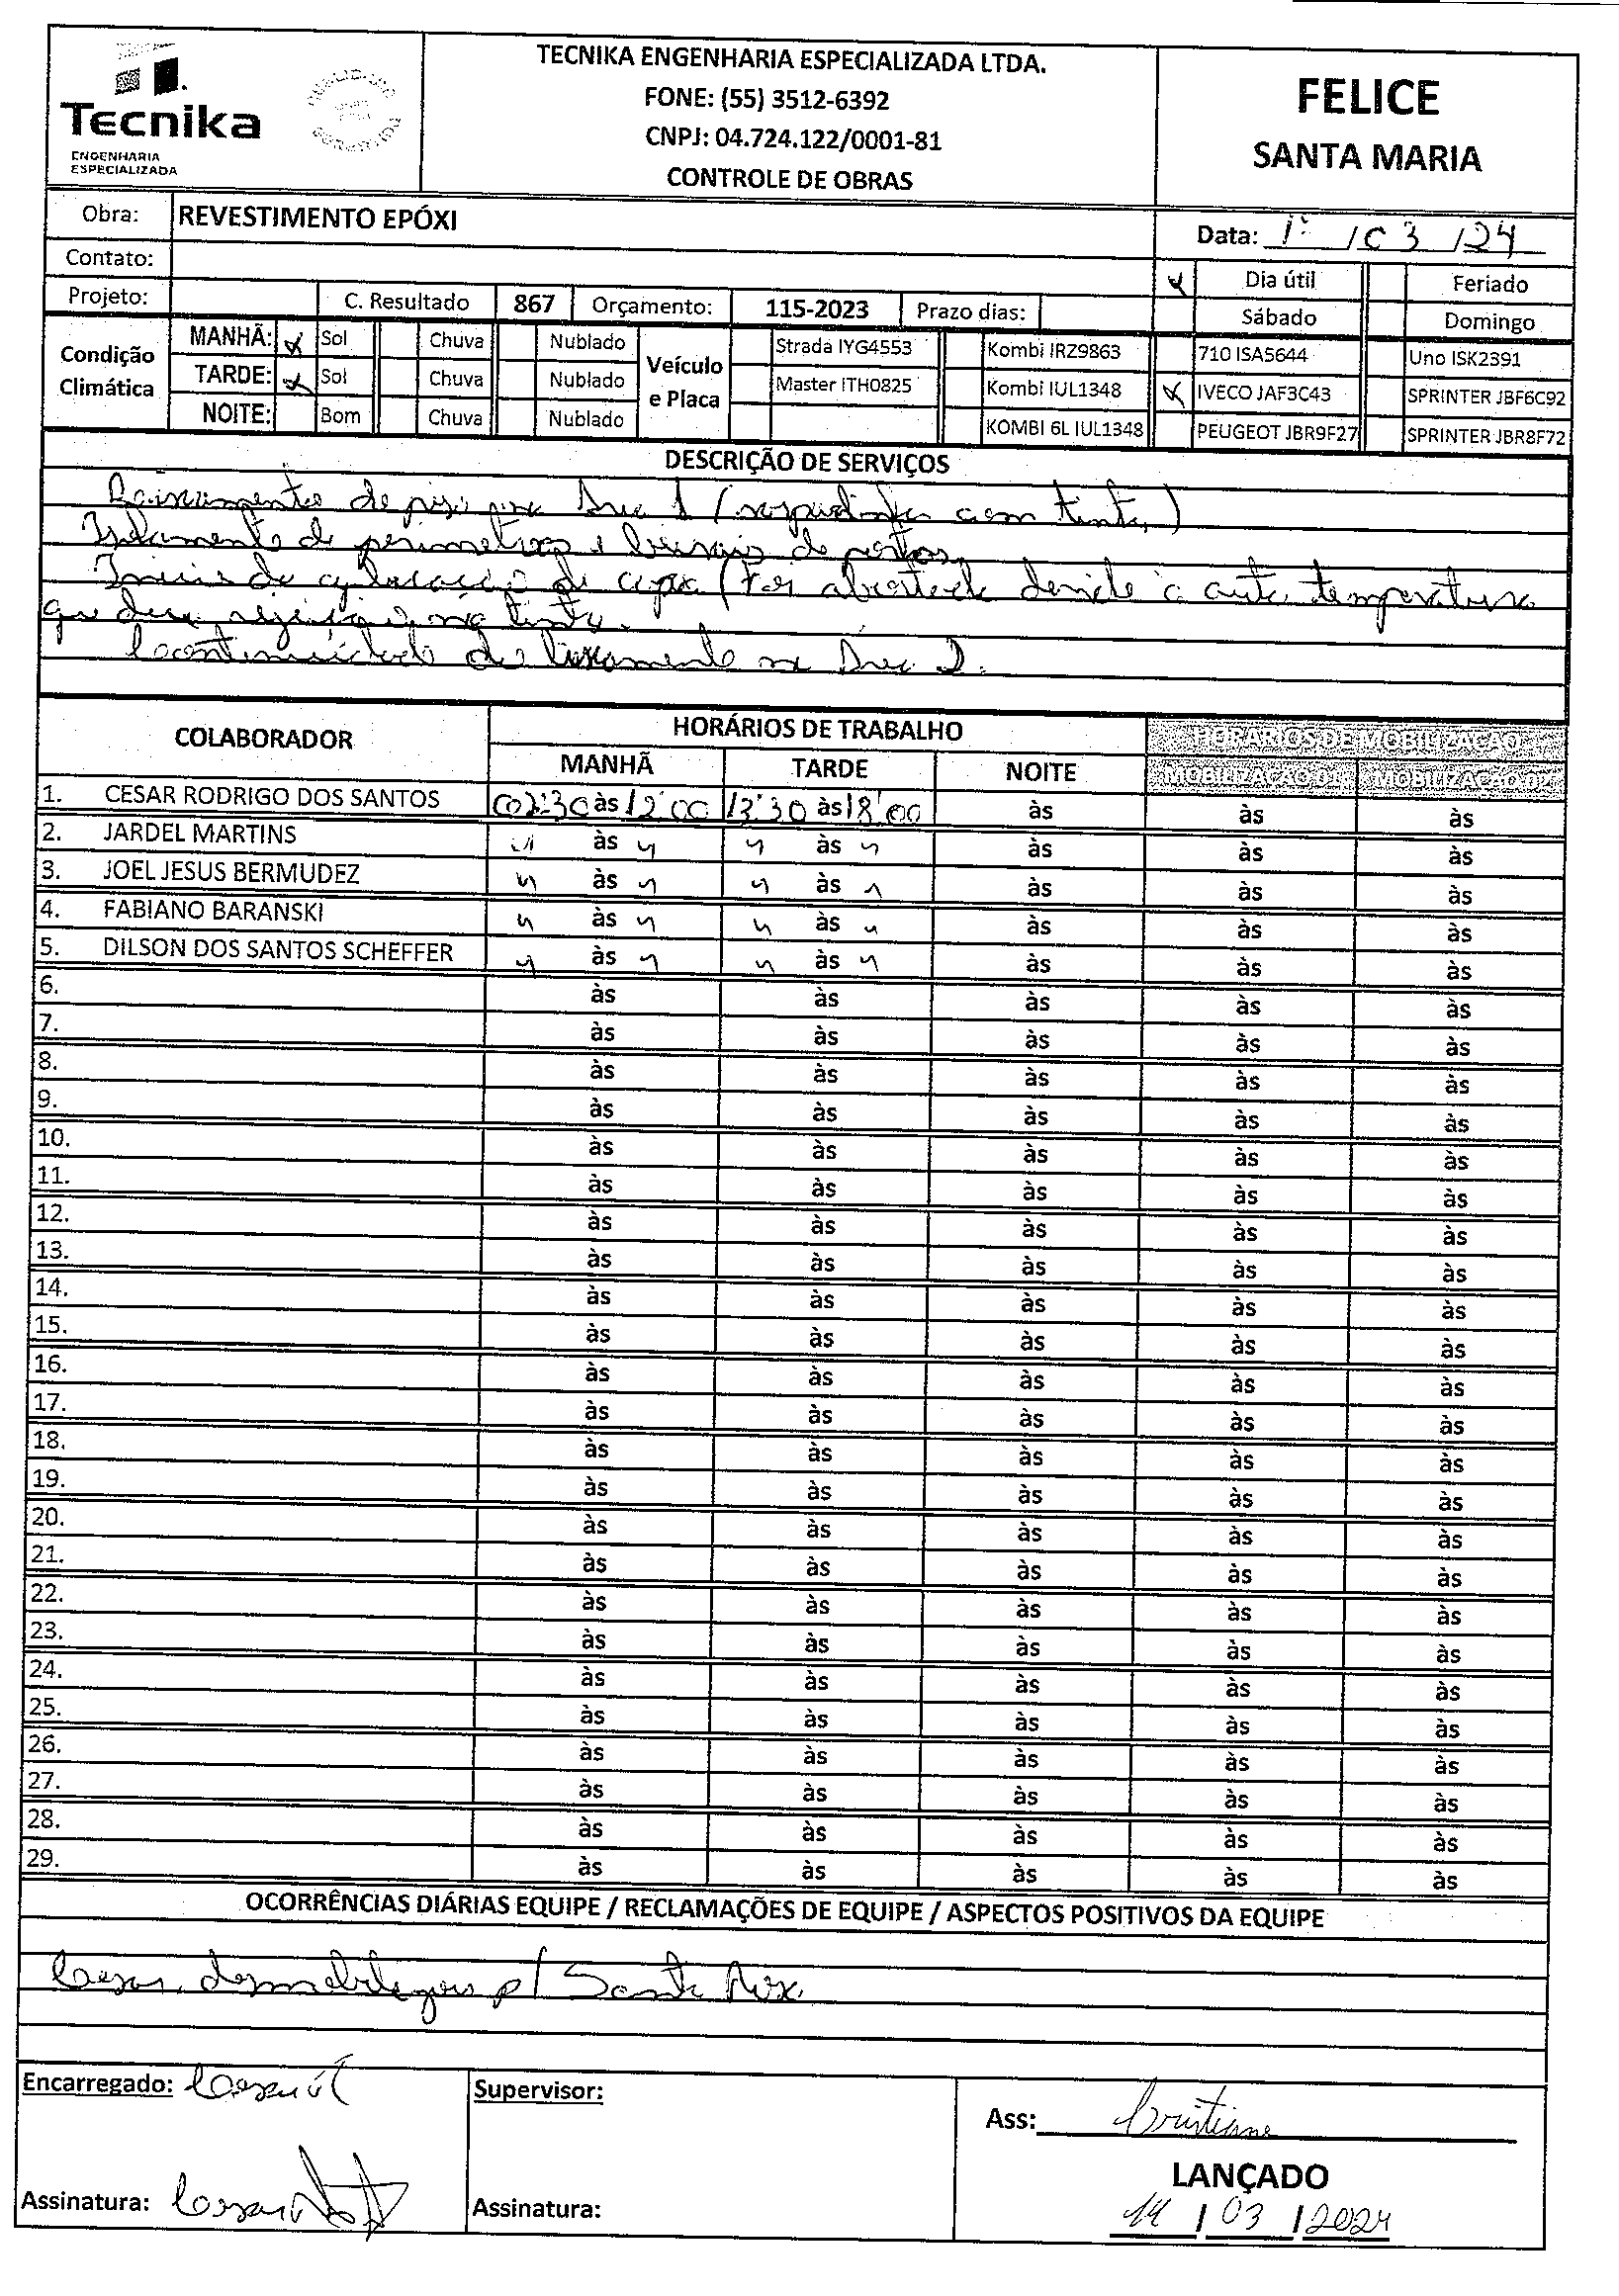 Tecnika
ENGENHARIA
ESPECIALIZADA
TECNIKA ENGENHARIA ESPECIALIZADA LTDA.
FONE: (55) 3512-6392
CNPJ: 04.724.122/0001-81
CONTROLE DE OBRAS
FELICE
SANTA MARIA
Obra: REVESTIMENTO EPÓXI
Data: 1º /03 /24
Contato:
Dia útil Feriado
Projeto: C. Resultado 867 Orçamento: 115-2023 Prazo dias:
Sábado Domingo
Condição Climática
MANHÃ: Sol Chuva Nublado
TARDE: Sol Chuva Nublado
NOITE: Bom Chuva Nublado
Veículo e Placa
Strada IYG4553 Kombi IRZ9863 710 ISA5644 Uno ISK2391
Master ITH0825 Kombi IUL1348 IVECO JAF3C43 SPRINTER JBF6C92
KOMBI 6L IUL1348 PEUGEOT JBR9F27 SPRINTER JBR8F72
DESCRIÇÃO DE SERVIÇOS
de piso na Área 1 ( com tinta)
Isolamento de perimetros e de portas
Inicio da aplicação de (Foi abortada devido à auta temperatura
que deu rejeição na tinta.
Continuidade de lixamento na Área 2.
COLABORADOR HORÁRIOS DE TRABALHO HORÁRIOS DE MOBILIZAÇÃO
MANHÃ TARDE NOITE MOBILIZAÇÃO 01 MOBILIZAÇÃO 02
1. CESAR RODRIGO DOS SANTOS 07:30 às 12:00 13:30 às 18:00 às às às
2. JARDEL MARTINS " às " " às " às às às
3. JOEL JESUS BERMUDEZ " às " " às " às às às
4. FABIANO BARANSKI " às " " às " às às às
5. DILSON DOS SANTOS SCHEFFER " às " " às " às às às
6. às às às às às
7. às às às às às
8. às às às às às
9. às às às às às
10. às às às às às
11. às às às às às
12. às às às às às
13. às às às às às
14. às às às às às
15. às às às às às
16. às às às às às
17. às às às às às
18. às às às às às
19. às às às às às
20. às às às às às
21. às às às às às
22. às às às às às
23. às às às às às
24. às às às às às
25. às às às às às
26. às às às às às
27. às às às às às
28. às às às às às
29. às às às às às
OCORRÊNCIAS DIÁRIAS EQUIPE / RECLAMAÇÕES DE EQUIPE / ASPECTOS POSITIVOS DA EQUIPE
Cesar p/ Santa Rosa
Encarregado: Cesar
Supervisor:
Ass: Cristiane
LANÇADO
Assinatura: Cesar
Assinatura:
14 / 03 / 2024